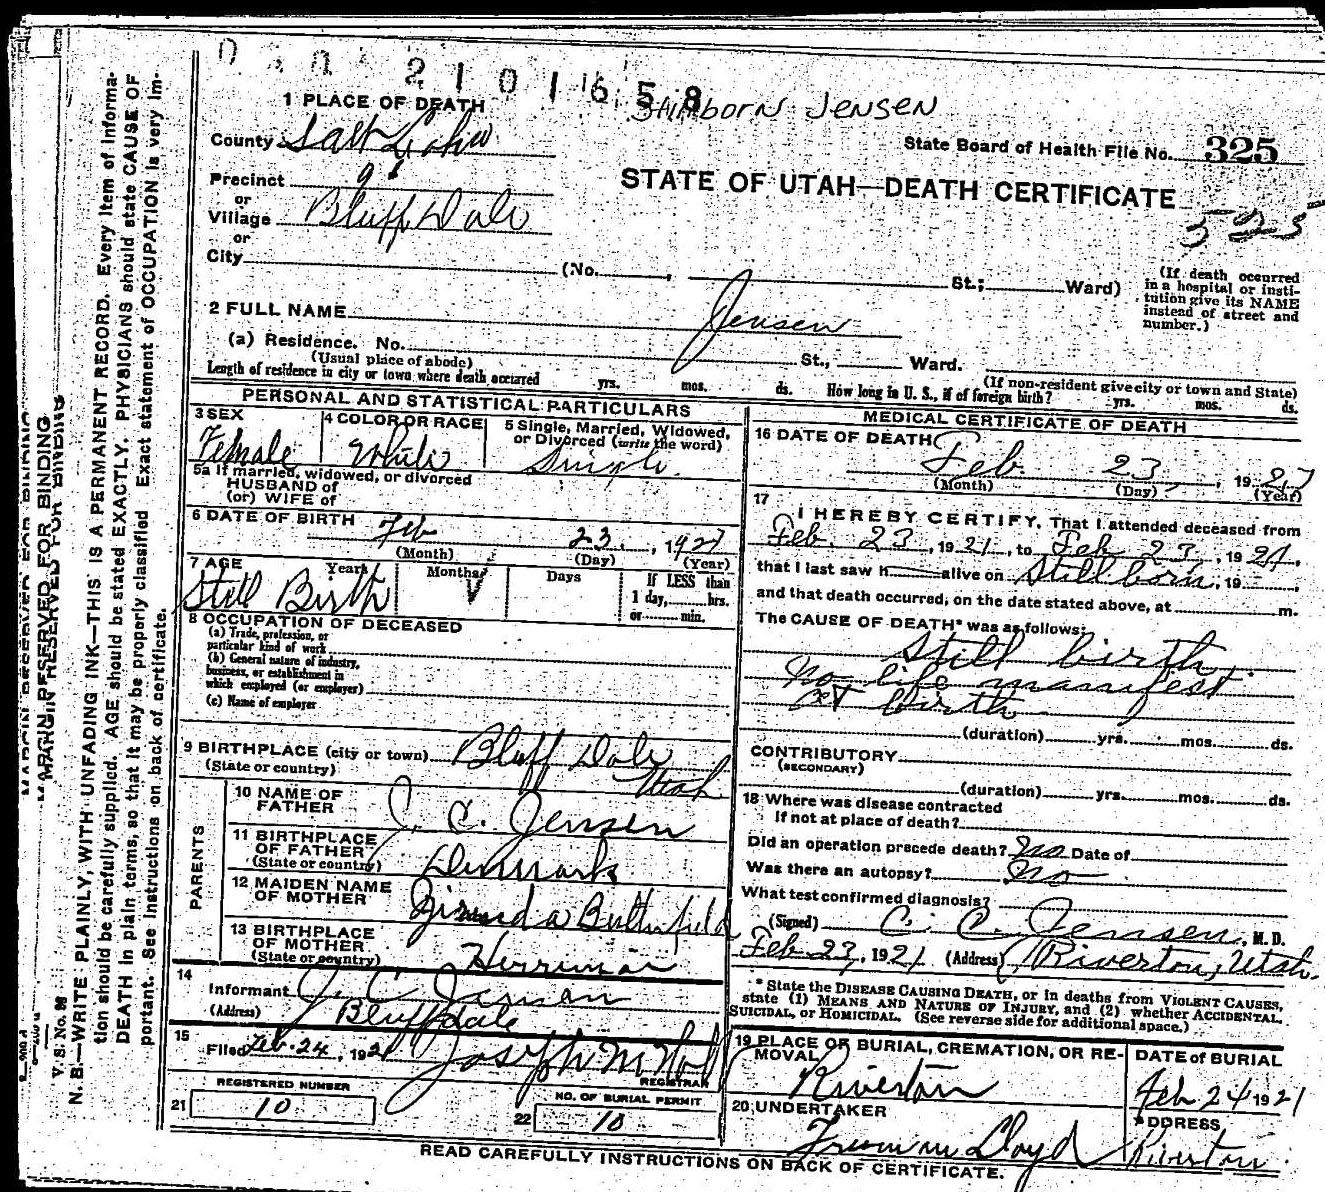 2101658
Stillborn JENSEN
1 PLACE OF DEATH
County Salt Lake
State Board of Health File No. 325
Precinct
or
Village Bluff Dale
or
City (No. , St.; Ward)
STATE OF UTAH—DEATH CERTIFICATE
525
(If death occurred
in a hospital or insti-
tution give its NAME
instead of street and
number.)
2 FULL NAME Jensen
(a) Residence. No. St., Ward.
(Usual place of abode) (If non-resident give city or town and State)
Length of residence in city or town where death occurred yrs. mos. ds. How long in U. S., if of foreign birth? yrs. mos. ds.
PERSONAL AND STATISTICAL PARTICULARS
3 SEX
Female
4 COLOR OR RACE
White
5 Single, Married, Widowed,
or Divorced (write the word)
Single
5a If married, widowed, or divorced
HUSBAND of
(or) WIFE of
6 DATE OF BIRTH Feb 23, 1921
(Month) (Day) (Year)
7 AGE Years Months Days If LESS than
1 day, hrs.
or min.
Still Birth
8 OCCUPATION OF DECEASED
(a) Trade, profession, or
particular kind of work
(b) General nature of industry,
business, or establishment in
which employed (or employer)
(c) Name of employer
9 BIRTHPLACE (city or town) Bluff Dale
(State or country) Utah
PARENTS
10 NAME OF
FATHER J. C. Jensen
11 BIRTHPLACE
OF FATHER
(State or country) Denmark
12 MAIDEN NAME
OF MOTHER Butterfield
13 BIRTHPLACE
OF MOTHER
(State or country) Herriman
14
Informant J. C. Jensen
(Address) Bluffdale
15
Filed Feb. 24, 1921 Joseph M
REGISTRAR
REGISTERED NUMBER
21 10
NO. OF BURIAL PERMIT
22 10
MEDICAL CERTIFICATE OF DEATH
16 DATE OF DEATH
Feb 23, 1921
(Month) (Day) (Year)
17
I HEREBY CERTIFY, That I attended deceased from
Feb. 23, 1921, to Feb 23, 1921,
that I last saw h alive on Still born, 19 ,
and that death occurred, on the date stated above, at m.
The CAUSE OF DEATH* was as follows:
Still birth.
No life manifest
at birth
(duration) yrs. mos. ds.
CONTRIBUTORY
(SECONDARY)
(duration) yrs. mos. ds.
18 Where was disease contracted
if not at place of death?
Did an operation precede death? No Date of
Was there an autopsy? No
What test confirmed diagnosis?
(Signed) C. C. Jensen, M. D.
Feb 23, 1921 (Address) Riverton, Utah.
* State the DISEASE CAUSING DEATH, or in deaths from VIOLENT CAUSES,
state (1) MEANS AND NATURE OF INJURY, and (2) whether ACCIDENTAL,
SUICIDAL, or HOMICIDAL. (See reverse side for additional space.)
19 PLACE OF BURIAL, CREMATION, OR RE-
MOVAL
Riverton
DATE of BURIAL
Feb 24 1921
20 UNDERTAKER
Lloyd
ADDRESS
Riverton
READ CAREFULLY INSTRUCTIONS ON BACK OF CERTIFICATE.
MARGIN RESERVED FOR BINDING
V. S. No. 98
N. B.—WRITE PLAINLY, WITH UNFADING INK—THIS IS A PERMANENT RECORD. Every item of informa-
tion should be carefully supplied. AGE should be stated EXACTLY. PHYSICIANS should state CAUSE OF
DEATH in plain terms, so that it may be properly classified. Exact statement of OCCUPATION is very im-
portant. See instructions on back of certificate.